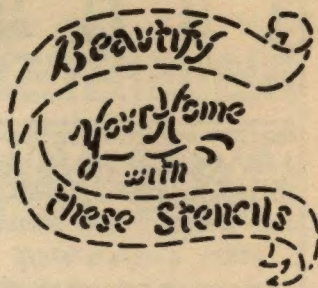 Beautify
Your Home
with
these Stencils